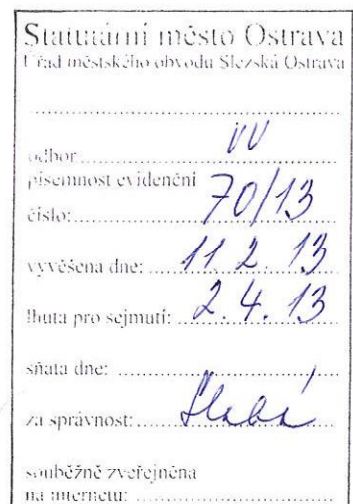 Statutární město Ostrava
Úřad městského obvodu Slezská Ostrava
odbor VV
písemnost evidenční
číslo: 70/13
vyvěšena dne: 11. 2. 13
lhůta pro sejmutí: 2. 4. 13
sňata dne:
za správnost: Slabá
souběžně zveřejněna
na internetu: